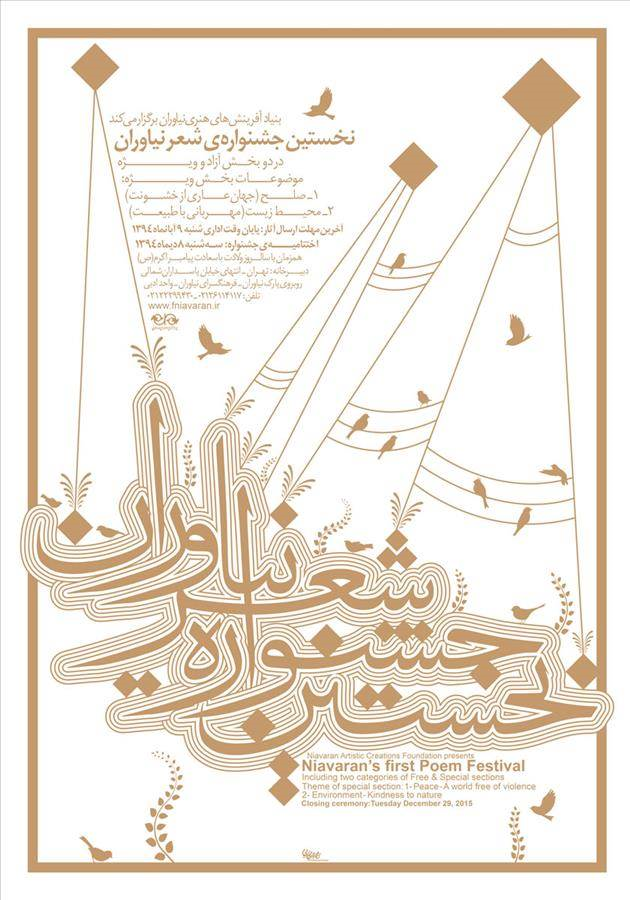 بنیاد آفرینش‌های هنری نیاوران برگزار می‌کند
نخستین جشنواره‌ی شعر نیاوران
در دو بخش آزاد و ویـــژه
موضوعـــات بخش ویـــژه:
۱ـ صلح (جهان عاری از خشونت)
۲ـ محیط زیست (مهربانی با طبیعت)
آخرین مهلت ارسال آثار: پایان وقت اداری شنبه ۹ آبانماه ۱۳۹۴
اختتامیــه‌ی جشنواره: سه شنبه ۸ دیماه ۱۳۹۴
همزمان با سالروز ولادت با سعادت پیامبر اکرم (ص)
دبیرخانه: تهران ـ انتهای خیابان پاسداران شمالی
روبروی پارک نیاوران ـ فرهنگسرای نیاوران ـ واحد ادبی
تلفن: ۰۲۱۲۶۱۱۴۱۱۷ـ۰۲۱۲۲۲۹۹۴۳۰
www.fniavaran.ir
نیاوران
شعر
جشنواره
نخستین
Niavaran Artistic Creations Foundation presents
Niavaran's first Poem Festival
Including two categories of Free & Special sections
Theme of special section: 1- Peace - A world free of violence
2- Environment - Kindness to nature
Closing ceremony:Tuesday December 29, 2015